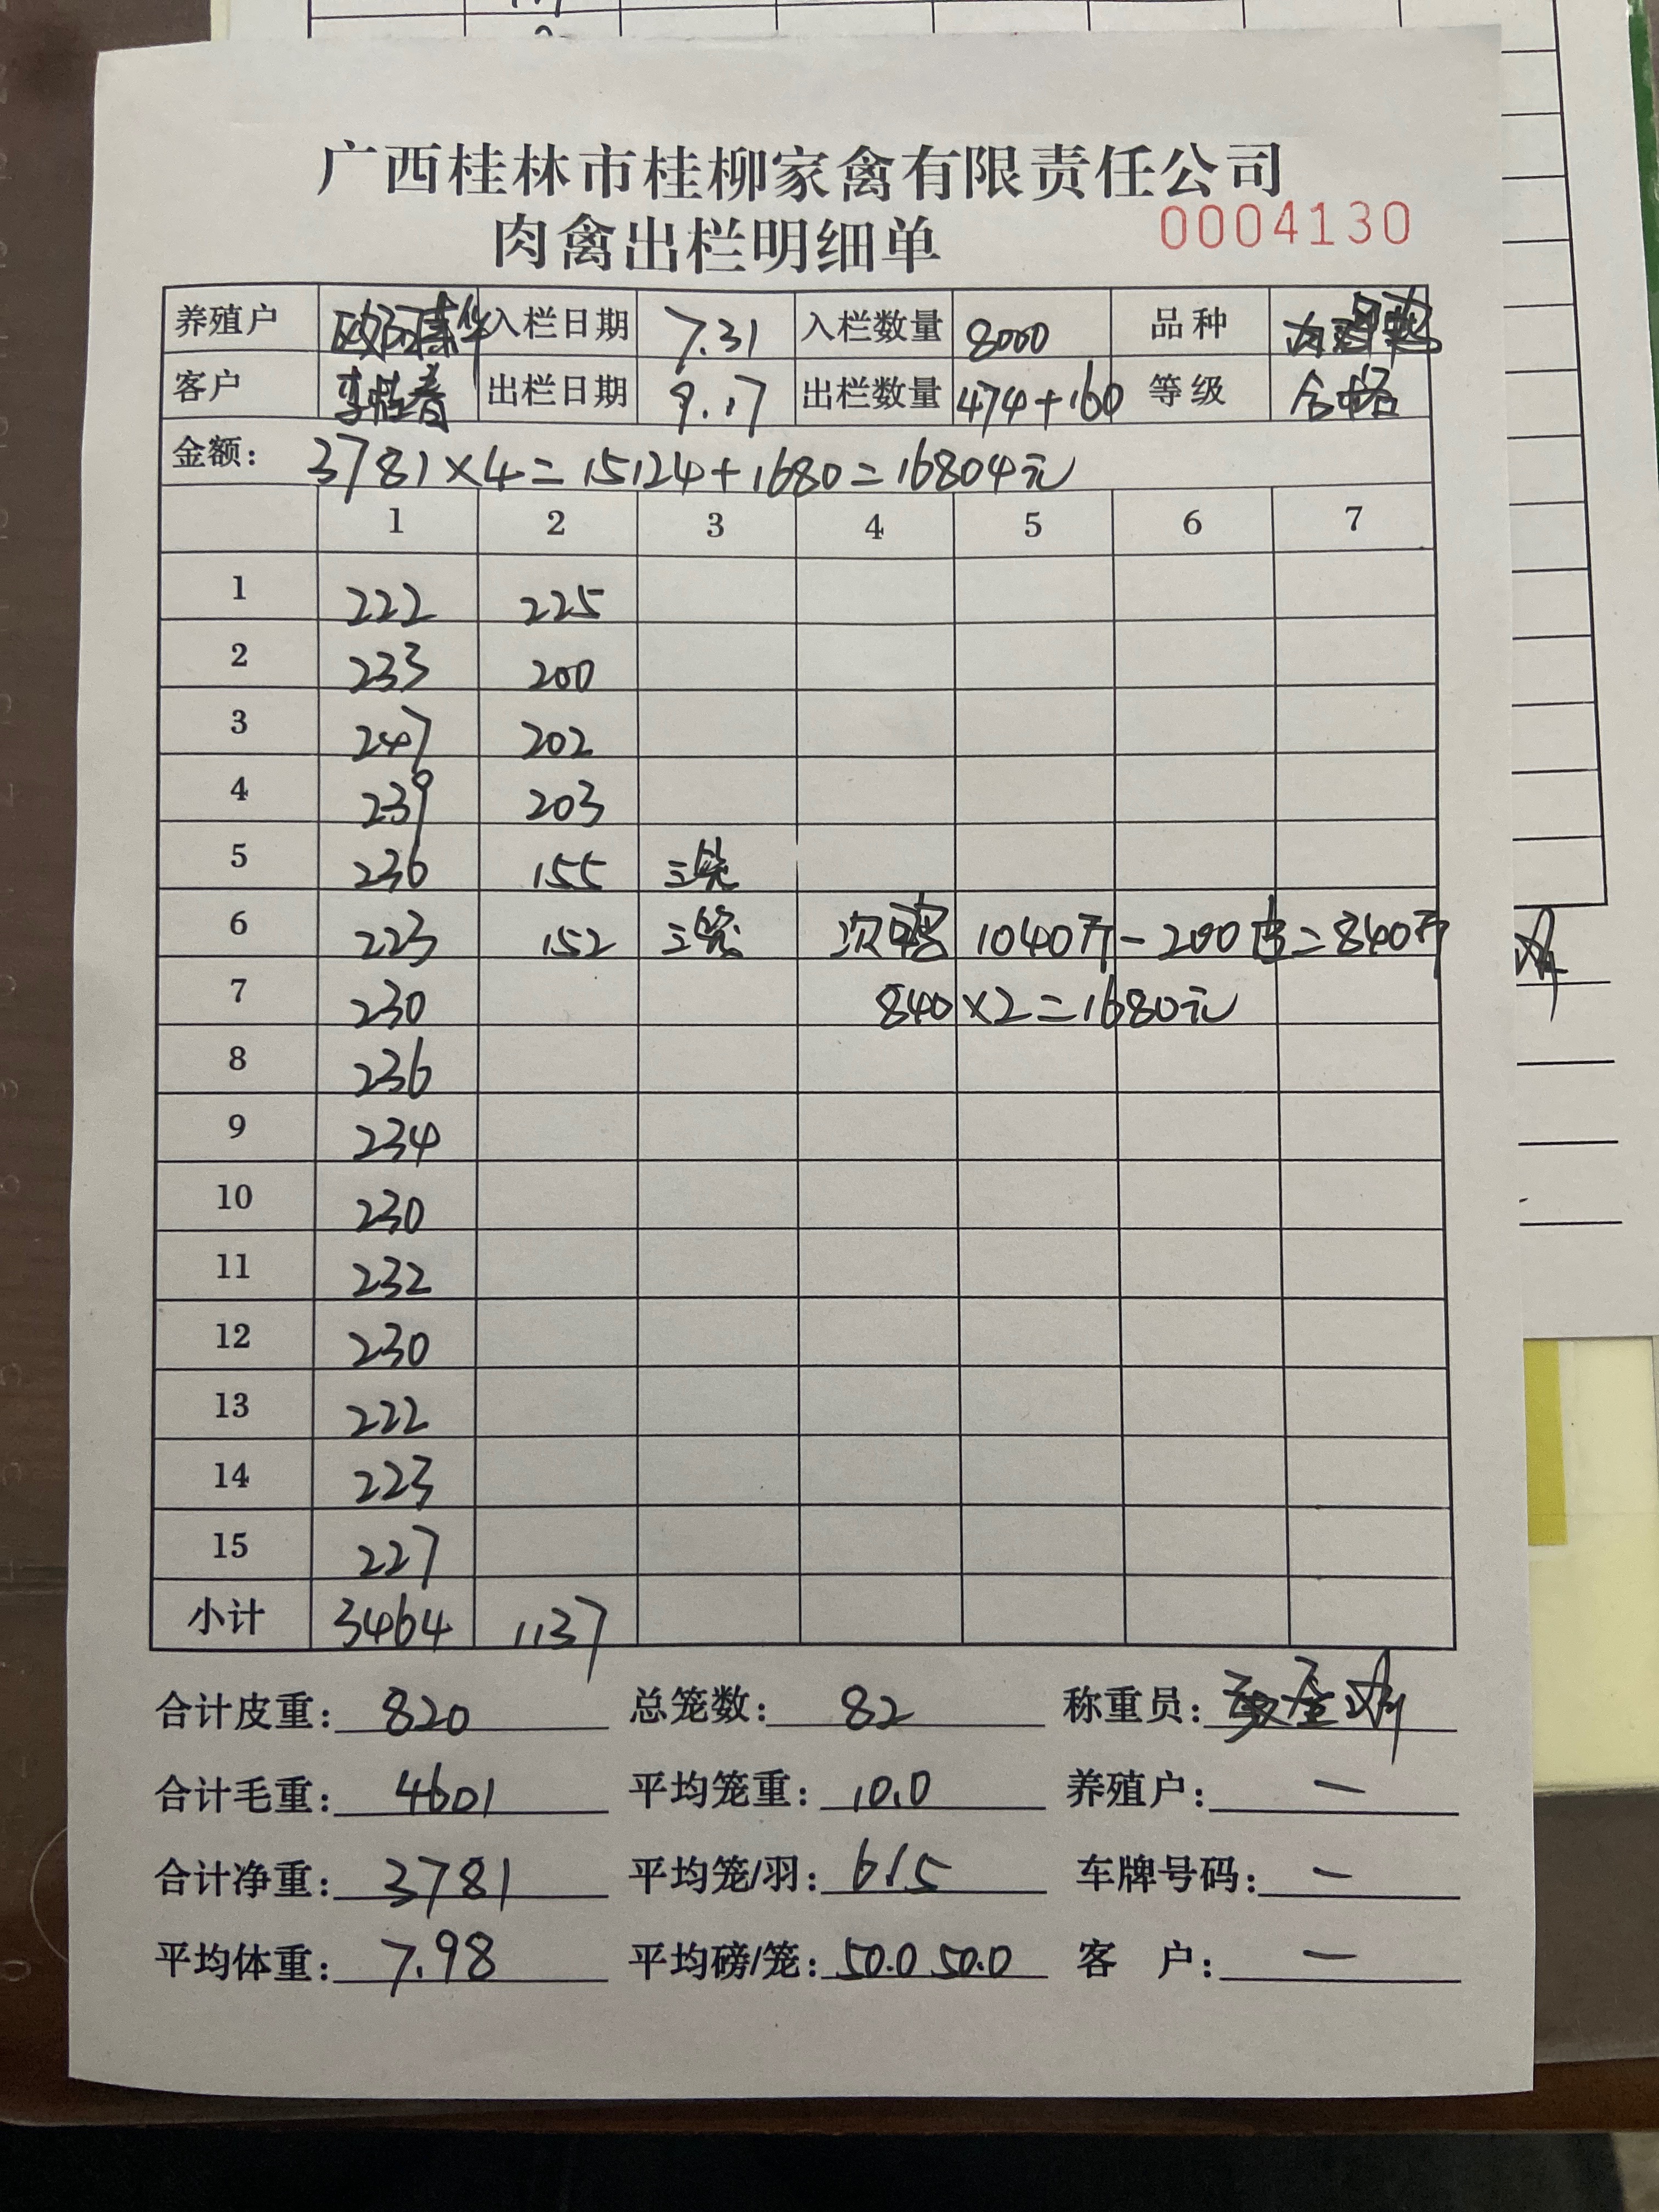 广西桂林市桂柳家禽有限责任公司
肉禽出栏明细单 0004130
养殖户 入栏日期 7.31 入栏数量 8000 品种
客户 李桂春 出栏日期 9.17 出栏数量 474+160 等级 合格
金额: 3781×4=15124+1680=16804元
1 2 3 4 5 6 7
1 222 225
2 233 200
3 247 202
4 239 203
5 236 155 三笼
6 223 152 三笼 次鸭 1040斤-200皮=840斤
7 230 840×2=1680元
8 236
9 234
10 230
11 232
12 230
13 222
14 223
15 227
小计 3464 1137
合计皮重: 820 总笼数: 82 称重员:
合计毛重: 4601 平均笼重: 10.0 养殖户: 一
合计净重: 3781 平均笼/羽: 6/5 车牌号码: 一
平均体重: 7.98 平均磅/笼: 50.0 50.0 客户: 一